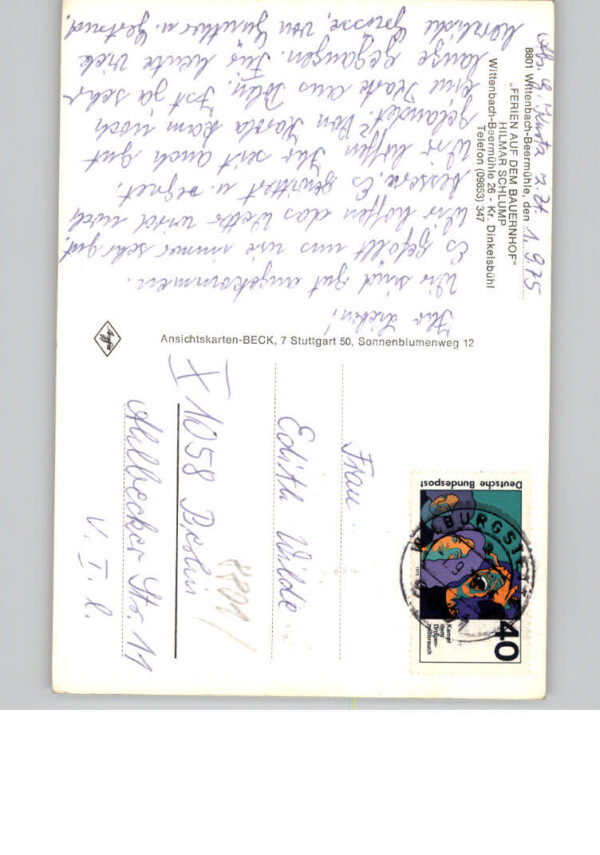 Abs. G. Kursta z. Zt.
8801 Wittenbach-Beermühle, den 1.9.75
„FERIEN AUF DEM BAUERNHOF"
HILMAR SCHLUMP
Wittenbach-Beermühle 26 - Kr. Dinkelsbühl
Telefon (09853) 347
Ihr Lieben!
Wir sind gut angekommen.
Es gefällt uns wie immer sehr gut.
Wir hoffen das Wetter wird noch
besser. Es gewittert u. regnet.
Wir hoffen Ihr seit auch gut
gelandet. Von Karola kam noch
eine Karte aus Köln. Ist ja sehr
lange gegangen. Für heute viele
herzliche Grüsse, von Günther u. Gertrud
Ansichtskarten-BECK, 7 Stuttgart 50, Sonnenblumenweg 12
Agfa
Deutsche Bundespost
40
Kampf
dem
Drogen-
mißbrauch
Frau
Edith Wilde
X 1058 Berlin
Ahlbecker Str. 11
V. I. l.